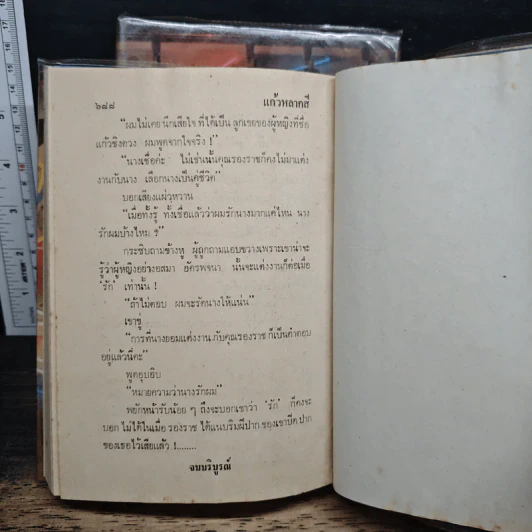 ๖๘๘ แก้วหลากสี
"ผมไม่เคย นึกเสียใจ ที่ได้เป็น ลูกเขยของผู้หญิงที่ชื่อ
แก้วชิงดวง ผมพูดจากใจจริง !"
"นางเชื่อค่ะ ไม่เช่นนั้นคุณรองราชก็คงไม่มาแต่ง
งานกับนาง เลือกนางเป็นคู่ชีวิต"
บอกเสียงแผ่วหวาน
"เมื่อทั้งรู้ ทั้งเชื่อแล้วว่าผมรักนางมากแค่ไหน นาง
รักผมบ้างไหม ?"
กระซิบถามข้างหู ผู้ถูกถามแอบขวางเพราะเขาน่าจะ
รู้ว่าผู้หญิงอย่างอสมา อัครพจนา นั้นจะแต่งงานก็ต่อเมื่อ
'รัก' เท่านั้น !
"ถ้าไม่ตอบ ผมจะรัดนางให้แน่น"
เขาขู่
"การที่นางยอมแต่งงาน กับคุณรองราช ก็เป็นคำตอบ
อยู่แล้วนี่คะ"
พูดอุบอิบ
"หมายความว่านางรักผม"
พยักหน้ารับน้อย ๆ ถึงจะบอกเขาว่า 'รัก' ก็คงจะ
บอก ไม่ได้ในเมื่อ รองราช ได้แนบริมฝีปาก ของเขาปิด ปาก
ของเธอไว้เสียแล้ว !.......
จบบริบูรณ์